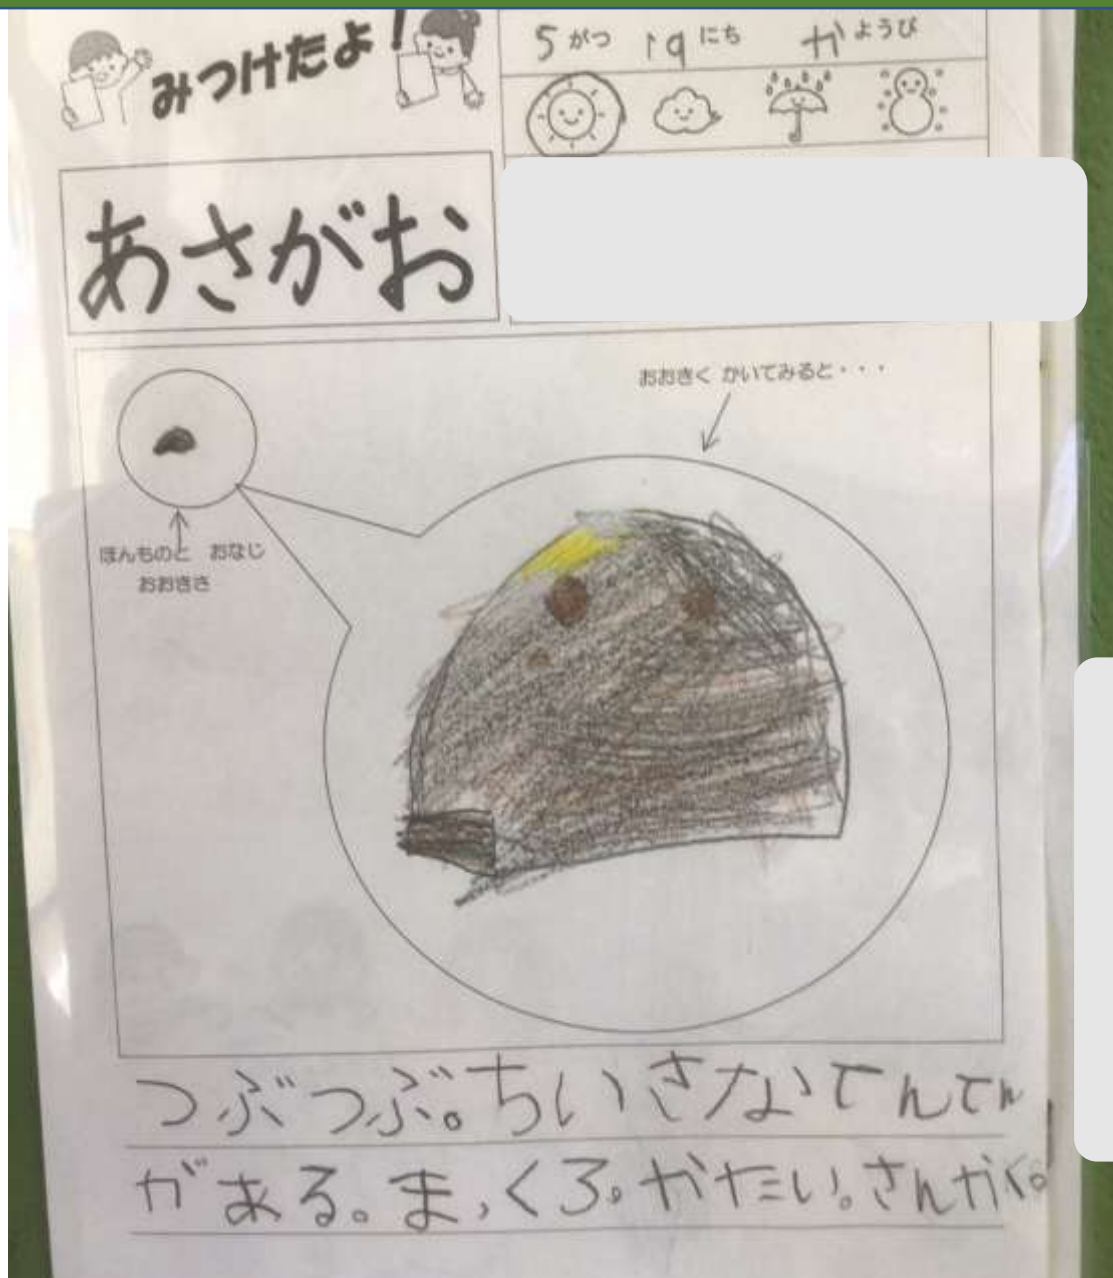 みつけたよ！
5がつ 19にち かようび
あさがお
おおきく かいてみると・・・
ほんものと おなじ
おおきさ
つぶつぶ。ちいさなてんてん
がある。まっくろ。かたい。さんかく。